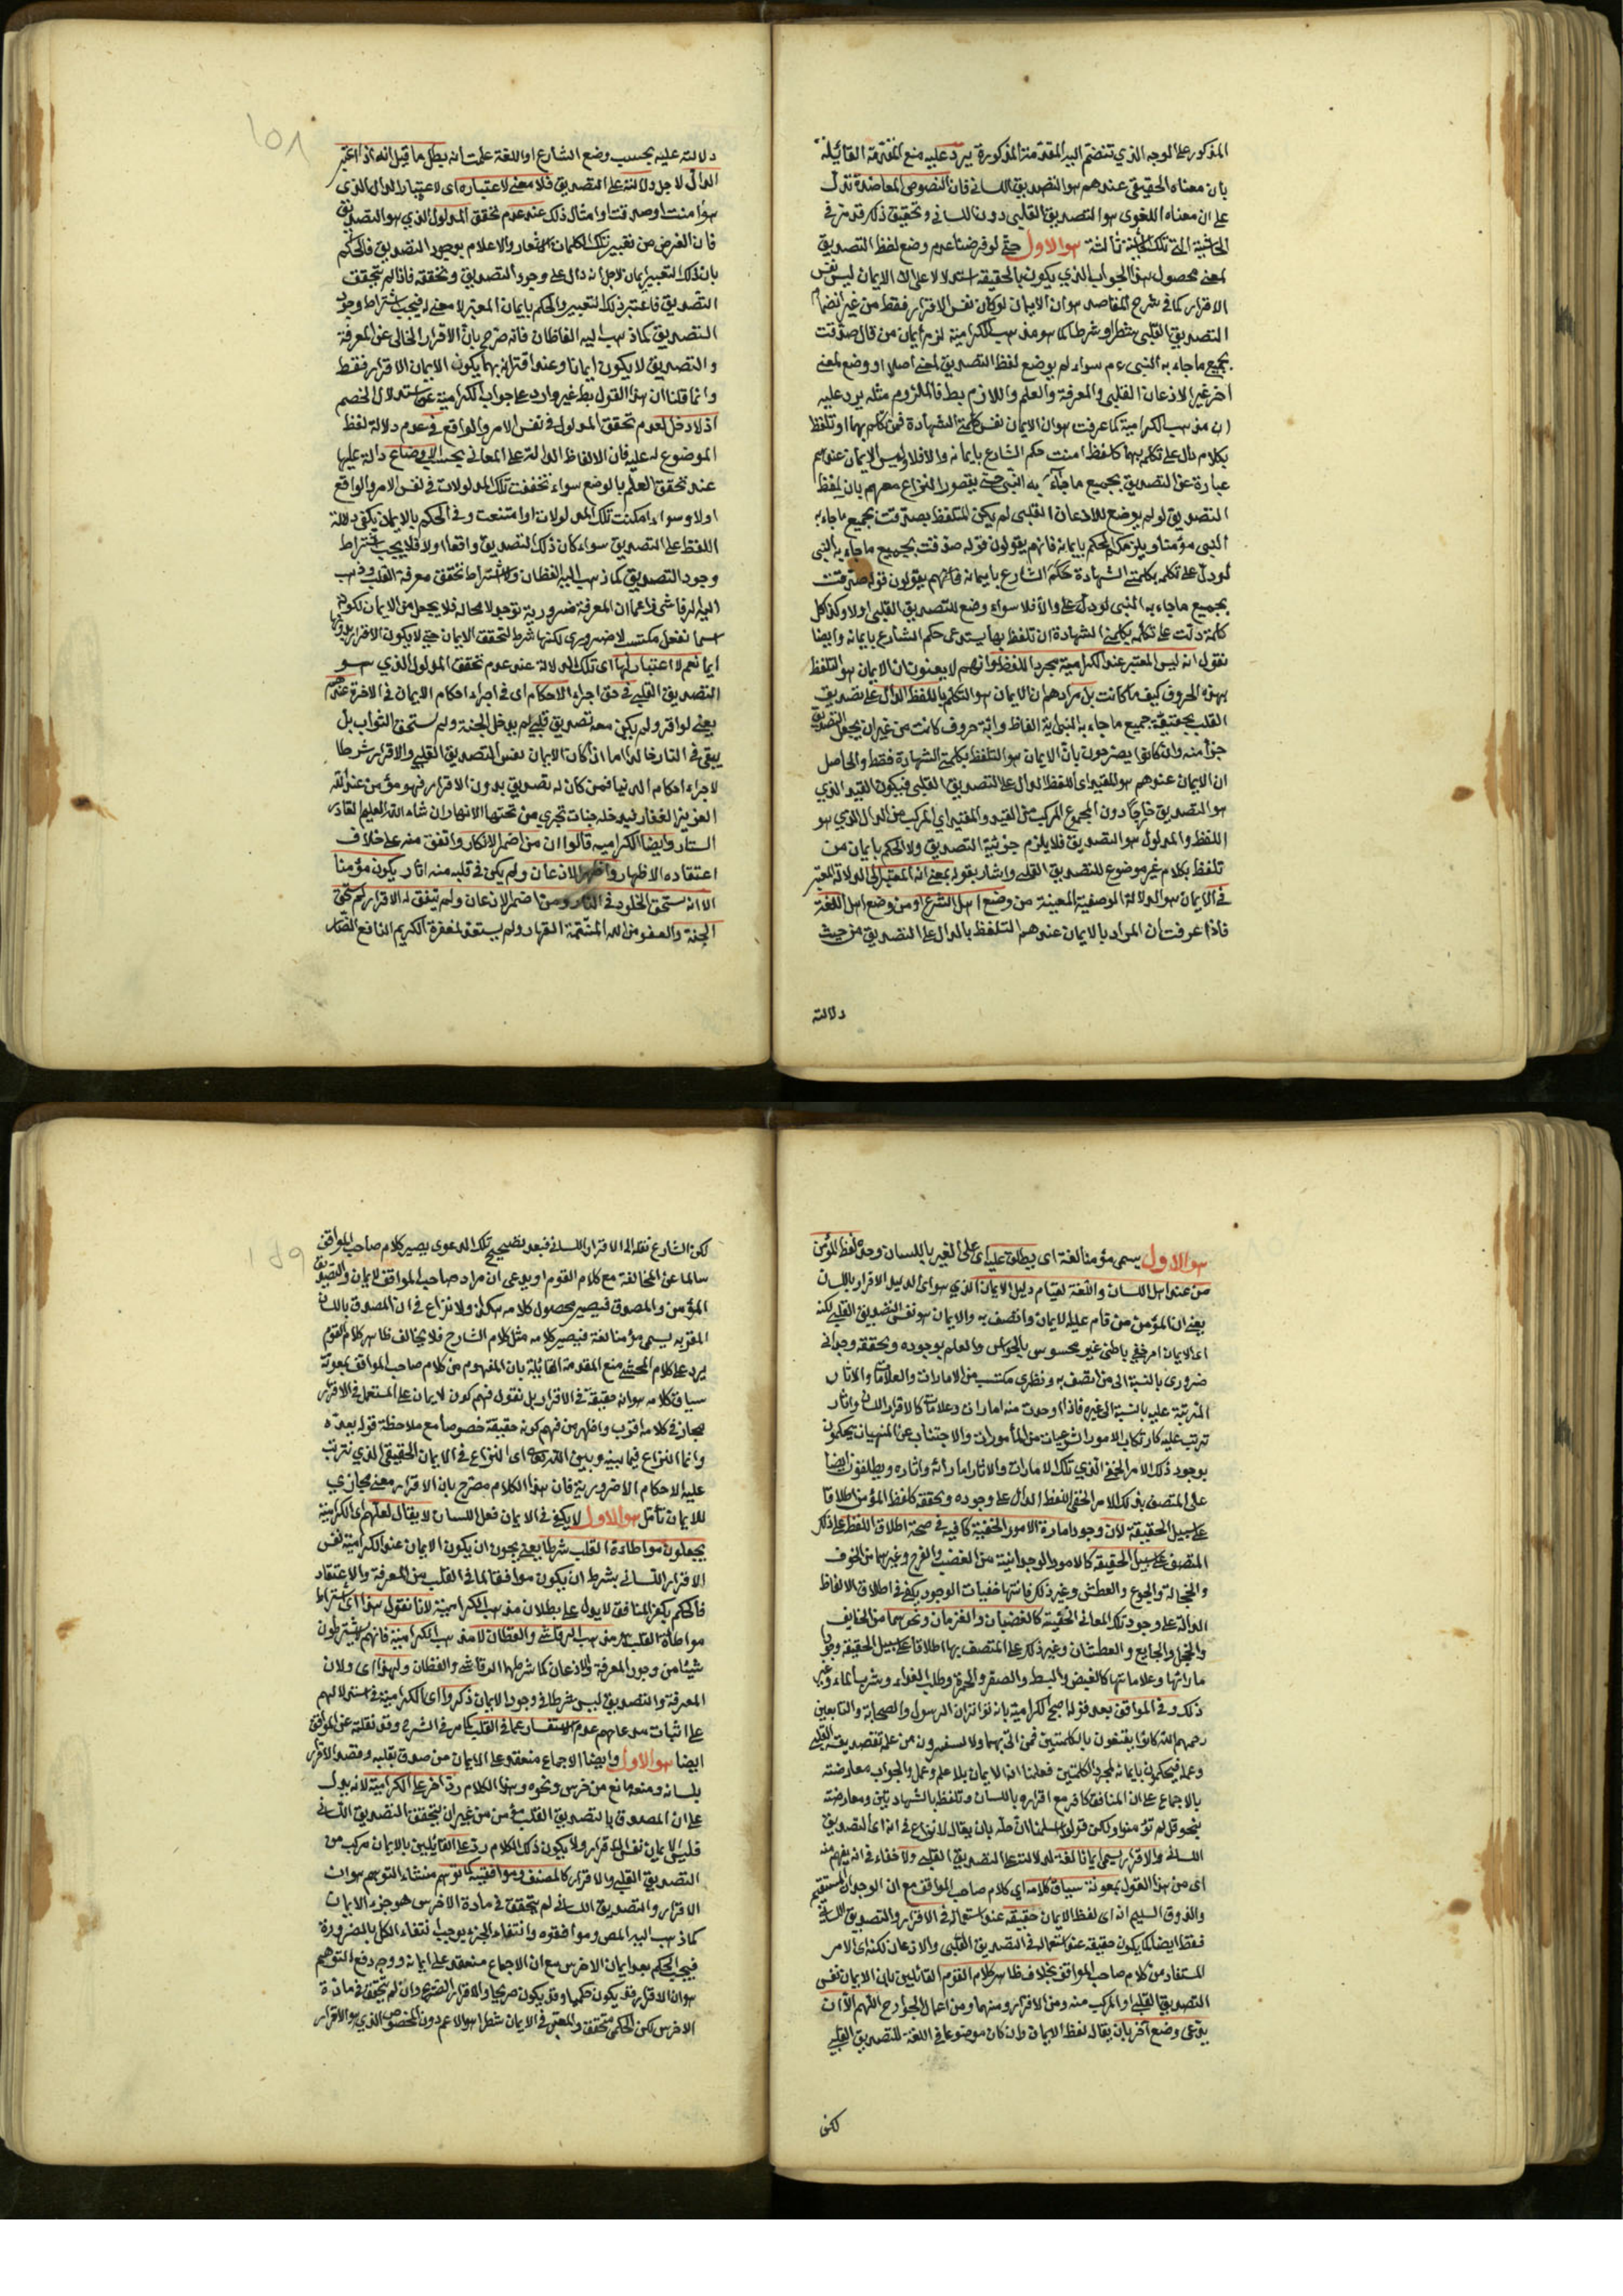 المذكور على الوجه الذي تنضم اليه المقدمة المذكورة يرد عليه منع المقدمة القائلة
بان معناه الحقيقي عندهم هو التصديق اللساني فان النصوص المعاضدة تدل
على ان معناه اللغوي هو التصديق القلبي دون اللساني وتحقيق ذكره قد مر في
الحاشية التي تلك الحاشية ثالثة هو الاول حتى لو فرضنا عدم وضع لفظ التصديق
لمعنى محصول هذا الجواب الذي يكون بالحقيقة استدلالا على ان الايمان ليس نفس
الاقرار كما في شرح المقاصد هو ان الايمان لو كان نفس الاقرار فقط من غير انضمام
التصديق القلبي شطرا وشرطا كما هو مذهب الكرامية لزم ايمان من قال صدقت
بجميع ما جاء به النبي ءم سواء لم يوضع لفظ التصديق لمعنى اصلا او وضع لمعنى
اخر غير الاذعان القلبي والمعرفة والعلم واللازم بط فالملزوم مثله يرد عليه
ان مذهب الكرامية كما عرفت هو ان الايمان نفس كلمتي الشهادة فمن تكلم بهما او تلفظ
بكلام دال على تكلمه بهما كلفظ امنت حكم الشارع بايمانه والا فلا وليس الايمان عندهم
عبارة عن التصديق بجميع ما جاء به النبي حتى يتصور النزاع معهم بان لفظ
التصديق لو لم يوضع للاذعان القلبي لم يكن المتلفظ بصدقت بجميع ما جاء به
النبي مؤمنا ويلزمكم الحكم بايمانه فانهم يقولون قوله صدقت بجميع ما جاء به النبي
لو دل على تكلمه بكلمتي الشهادة حكم الشارع بايمانه فانهم يقولون قوله صدقت
بجميع ما جاء به النبي لو دل على والا فلا سواء وضع للتصديق القلبي اولا وكذا كل
كلمة دلت على تكلمه بكلمتي الشهادة ان تلفظ بها يستدعى حكم الشارع بايمانه وايضا
نقول انه ليس المعتبر عند الكرامية مجرد اللفظ وانهم لا يعنون ان الايمان هو التلفظ
بهذه الحروف كيف ما كانت بل مرادهم ان الايمان هو التكلم باللفظ الدال على تصديق
القلب بحقيقة جميع ما جاء به النبي اية الفاظ واية حروف كانت من غير ان يجعل التصديق
جزأ منه وان كانوا يصرحون بان الايمان هو التلفظ بكلمتي الشهادة فقط والحاصل
ان الايمان عندهم هو المقيد اي اللفظ الدال على التصديق القلبي فيكون القيد الذي
هو التصديق خارجا دون المجموع المركب من القيد والمقيد اي المركب من الدال الذي هو
اللفظ والمدلول هو التصديق فلا يلزم جزئية التصديق ولا الحكم بايمان من
تلفظ بكلام غير موضوع للتصديق القلبي واشار بقوله بمعنى انه المعتبر الى الدلالة المعتبر
في الايمان هو الدلالة الوصفية المعينة من وضع اهل الشرع او من وضع اهل اللغة
فاذا عرفت ان المراد بالايمان عندهم التلفظ بالدال على التصديق من حيث
دلالته
١٥٨
دلالته عليه بحسب وضع الشارع او اللغة علمت انه بطل ما قيل انه اذا اعتبر
الدال لاجل دلالته على التصديق فلا معنى لاعتباره اي لاعتبار الدال الذي
هو امنت او صدقت او امثال ذلك عند عدم تحقق المدلول الذي هو التصديق
فان الغرض من تعبير تلك الكلمات الاشعار والاعلام بوجود التصديق فالحكم
بان ذلك التعبير ايمان لاجل انه دال على وجود التصديق وتحققه فاذا لم يتحقق
التصديق فاعتبر ذلك التعبير والحكم بايمان المعبر لا معنى له فيجب اشتراط وجود
التصديق كما ذهب اليه القطان فانه صرح بان الاقرار الخالي عن المعرفة
والتصديق لا يكون ايمانا وعند اقترانه بهما يكون الايمان الاقرار فقط
وانما قلنا ان هذا القول بط غير وارد على جواب الكرامية عن استدلال الخصم
اذ لا دخل لعدم تحقق المدلول في نفس الامر والواقع في عدم دلالة لفظ
الموضوع له عليه فان الالفاظ الدالة على المعاني بحسب الاوضاع دالة عليها
عند تحقق العلم بالوضع سواء تحققت تلك المدلولات في نفس الامر والواقع
اولا وسواء امكنت تلك المدلولات او امتنعت وفي الحكم بالايمان يكفي دلالة
اللفظ على التصديق سواء كان ذلك التصديق واقعا اولا فلا يجب اشتراط
وجود التصديق كما ذهب اليه القطان ولا اشتراط تحقق معرفة القلب وذهب
اليه الرقاشي زاعما ان المعرفة ضرورية توجد لا محالة فلا يجعل من الايمان لكونه
اسما لفعل مكتسب لا ضروري لكنها شرط لتحقق الايمان حتى لا يكون الاقرار بدونها
ايما نعم لا اعتبار لها اي تلك الدلالة عند عدم تحقق المدلول الذي هو
التصديق القلبي في حق اجراء الاحكام اي في اجراء احكام الايمان في الاخرة عندهم
يعني لو اقر ولم يكن معه تصديق قلبي لم يدخل الجنة ولم يستحق الثواب بل
يبقى في النار خالدا اما اذا كان الايمان نفس التصديق القلبي والاقرار شرطا
لاجراء احكام الدنيا فمن كان له تصديق بدون الاقرار فهو مؤمن عند الله
العزيز الغفار فيدخله جنات تجري من تحتها الانهار ان شاء الله العليم القادر
الستار وايضا الكرامية قالوا ان من اضمر الانكار واتفق منه على خلاف
اعتقاده الاظهار واظهر الاذعان ولم يكن في قلبه منه اثار يكون مؤمنا
الا انه يستحق الخلود في النار ومن اضمر الاذعان ولم يتفق له الاقرار لم يستحق
الجنة والعفو من الله القهار ولم يستعد لمغفرة الكريم النافع الضار
هو الاول يسمى مؤمنا لغة اي يطلق عليه اي على المقر باللسان وحده لفظ المؤمن
من عند اهل اللسان واللغة لقيام دليل الايمان الذي هو اي الدليل الاقرار باللسان
يعني ان المؤمن من قام عليه الايمان واتصف به والايمان هو نفس التصديق القلبي لكنه
اي الايمان امر خفي باطني غير محسوس بالحواس والعلم بوجوده وتحققه وجداني
ضروري بالنسبة الى من اتصف به ونظري مكتسب من الامارات والعلامات والاثار
المترتبة عليه بالنسبة الى غيره فاذا وجدت منه امارات وعلامات كالاقرار اللساني واثار
تترتب عليه كارتكاب الامور الشرعيات من المأمورات والاجتناب عن المنهيات يحكمون
بوجود ذلك الامر الخفي الذي تلك الامارات والاثار اماراته واثاره ويطلقون ايضا
على المتصف بذلك الامر الخفي اللفظ الدال على وجوده وتحققه كلفظ المؤمن اطلاقا
على سبيل الحقيقة لان وجود امارة الامور الخفية كافية في صحة اطلاق اللفظ على ذلك
المتصف على سبيل الحقيقة كالامور الوجدانية من الغضب والفرح وغيرهما من الخوف
والخجالة والجوع والعطش وغير ذلك فانها خفيات الوجود يكفي في اطلاق الالفاظ
الدالة على وجود تلك المعاني الخفية كالغضبان والفرحان ونحوهما من الخايف
والخجل والجايع والعطشان وغير ذلك على المتصف بها اطلاقا على سبيل الحقيقة وجود
اماراتها وعلاماتها كالقبض والبسط والصفرة والحمرة وطلب الغذاء وشرب الماء وغير
ذلك وفي المواقف بعد قوله احتج الكرامية بانه تواتر ان الرسول والصحابة والتابعين
رحمهم الله كانوا يقنعون بالكلمتين فمن اتى بهما ولا يستفسرون من علم تصديقه القلبي
وعمله فيحكمون بايمانه لمجرد الكلمتين فعلمنا ان الايمان بلا علم وعمل والجواب معارضته
بالاجماع على ان المنافق كافر مع اقراره باللسان وتلفظه بالشهادتين ومعارضته
بنحو قل لم تؤمنوا ولكن قولوا اسلمنا بان يقال لا نزاع في انه اي التصديق
اللساني والاقرار يسمى ايمانا لغة لدلالته على التصديق القلبي ولا خفاء في انه يفهم منه
اي من هذا القول بمعونة سياق كلامه اي كلام صاحب المواقف مع ان الوجدان المستقيم
والذوق السليم انه اي لفظ الايمان حقيقة عند استعماله في الاقرار والتصديق اللساني
فقط ايضا كما يكون حقيقة عند استعماله في التصديق القلبي والاذعان لكنه اي الامر
المستفاد من كلام صاحب المواقف بخلاف ظاهر كلام القوم القائلين بان الايمان نفس
التصديق القلبي او المركب منه ومن الاقرار ومنهما ومن اعمال الجوارح اللهم الا ان
يدعى وضع آخر بان يقال لفظ الايمان وان كان موضوعا في اللغة للتصديق القلبي
لكن
١٥٩
لكن الشارع نقله الى الاقرار اللساني فبعد تصحيح تلك الدعوى يصير كلام صاحب المواقف
سالما عن المخالفة مع كلام القوم او يدعى ان مراد صاحب المواقف الايمان والتصديق
المؤمن والمصدق فيصير محصول كلامه هكذا ولا نزاع في ان المصدق باللسان
المقر به يسمى مؤمنا لغة فيصير كلامه مثل كلام الشارح فلا يخالف ظاهر كلام القوم
يرد على كلام المحشي منع المقدمة القائلة بان المفهوم من كلام صاحب المواقف بمعونة
سياق كلامه هو انه حقيقة في الاقرار بل نقول فهم كون الايمان على المستعمل في الاقرار
مجاز في كلامه اقرب واظهر من فهم كونه حقيقة خصوصا مع ملاحظة قوله بعده
وانما النزاع فيما بينه وبين الله تعالى اي النزاع في الايمان الحقيقي الذي يترتب
عليه الاحكام الاخروية فان هذا الكلام مصرح بان الاقرار معنى مجازي
للايمان تأمل هو الاول لا يكفي في الايمان فعل اللسان لا يقال لعلهم اي الكرامية
يجعلون مواطأة القلب شرطا يعني يجوز ان يكون الايمان عند الكرامية نفس
الاقرار اللساني بشرط ان يكون موافقا لما في القلب من المعرفة والاعتقاد
فالحكم بكفر المنافق لا يدل على بطلان مذهب الكرامية لانا نقول هذا اي اشتراط
مواطأة القلب مذهب الرقاشي والقطان لا مذهب الكرامية فانهم لا يشترطون
شيئا من وجود المعرفة والاذعان كما شرطها الرقاشي والقطان ولهذا اي ولان
المعرفة والتصديق ليس شرطا في وجود الايمان ذكروا اي الكرامية في استدلالهم
على اثبات مدعاهم عدم الاستفسار عما في القلب كما مر في الشرح وقد نقلته عن المواقف
ايضا هو الاول وايضا الاجماع منعقد على الايمان من صدق بقلبه وقصد الاقرار
بلسانه ومنعه مانع من خرس ونحوه وهذا الكلام رد اخر على الكرامية لانه يدل
على ان المصدق بالتصديق القلبي مؤمن من غير ان يتحقق التصديق اللساني
فليس الايمان نفس الاقرار ولا يكون ذلك الكلام رد على القائلين بالايمان مركب من
التصديق القلبي والاقرار كالمصنف وموافقيه كما توهم منشاء التوهم هو ان
الاقرار والتصديق اللساني لم يتحقق في مادة الاخرس هو جزء الايمان
كما ذهب اليه المص وموافقوه وانتفاء الجزء يوجب انتفاء الكل بالضرورة
فيجب الحكم بعدم ايمان الاخرس مع ان الاجماع منعقد على ايمانه ووجه دفع التوهم
هو ان الاقرار قد يكون حكميا وقد يكون صريحا والاقرار الصريح وان لم يتحقق في مادة
الاخرس لكن الحكمي متحقق والمعتبر في الايمان شطرا هو الاعم دون المخصوص الذي هو الاقرار